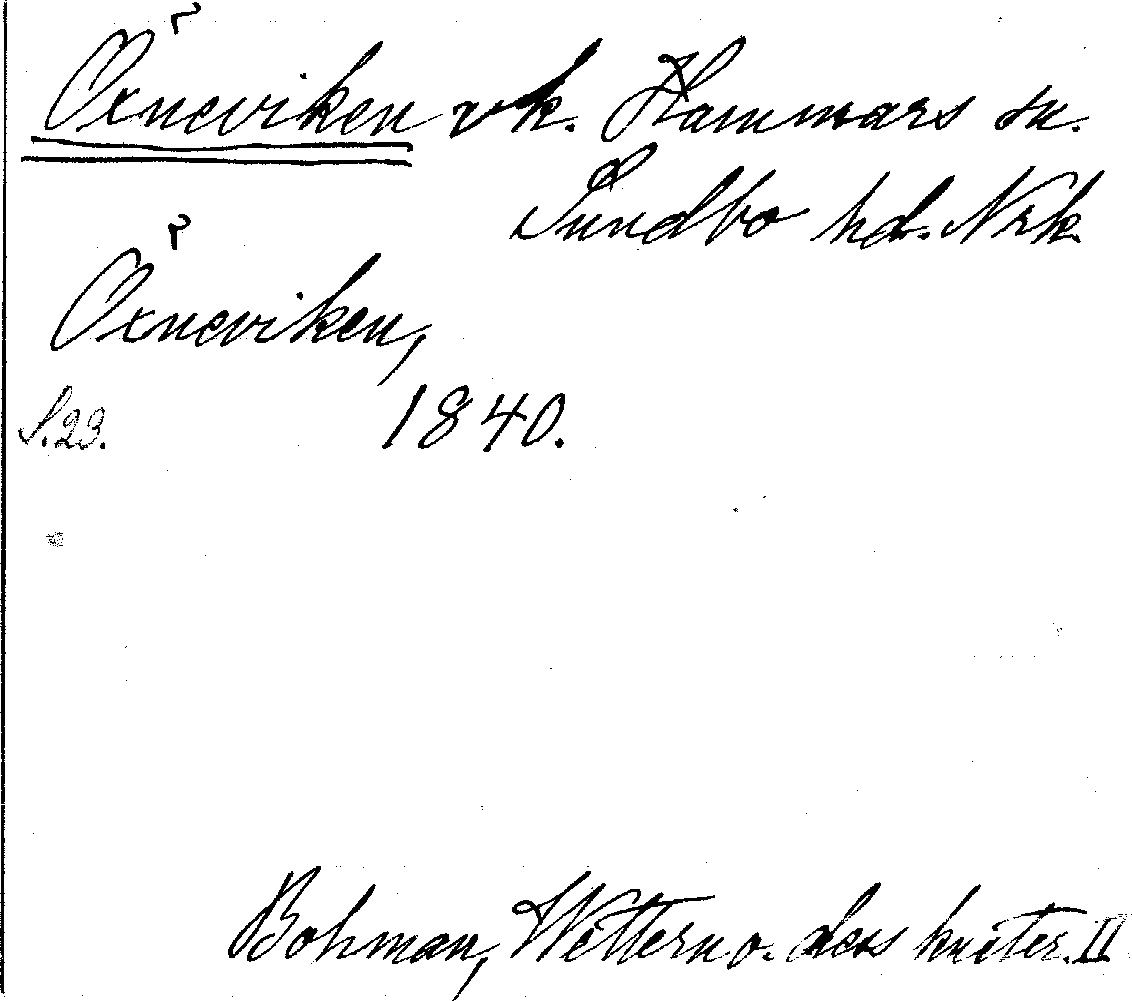 Öxneviken vk. Hammars sn.
Sundbo hd. Nrk.
Öxneviken,
S. 23. 1840.
Bohman, Wettern o. dess kuster. II